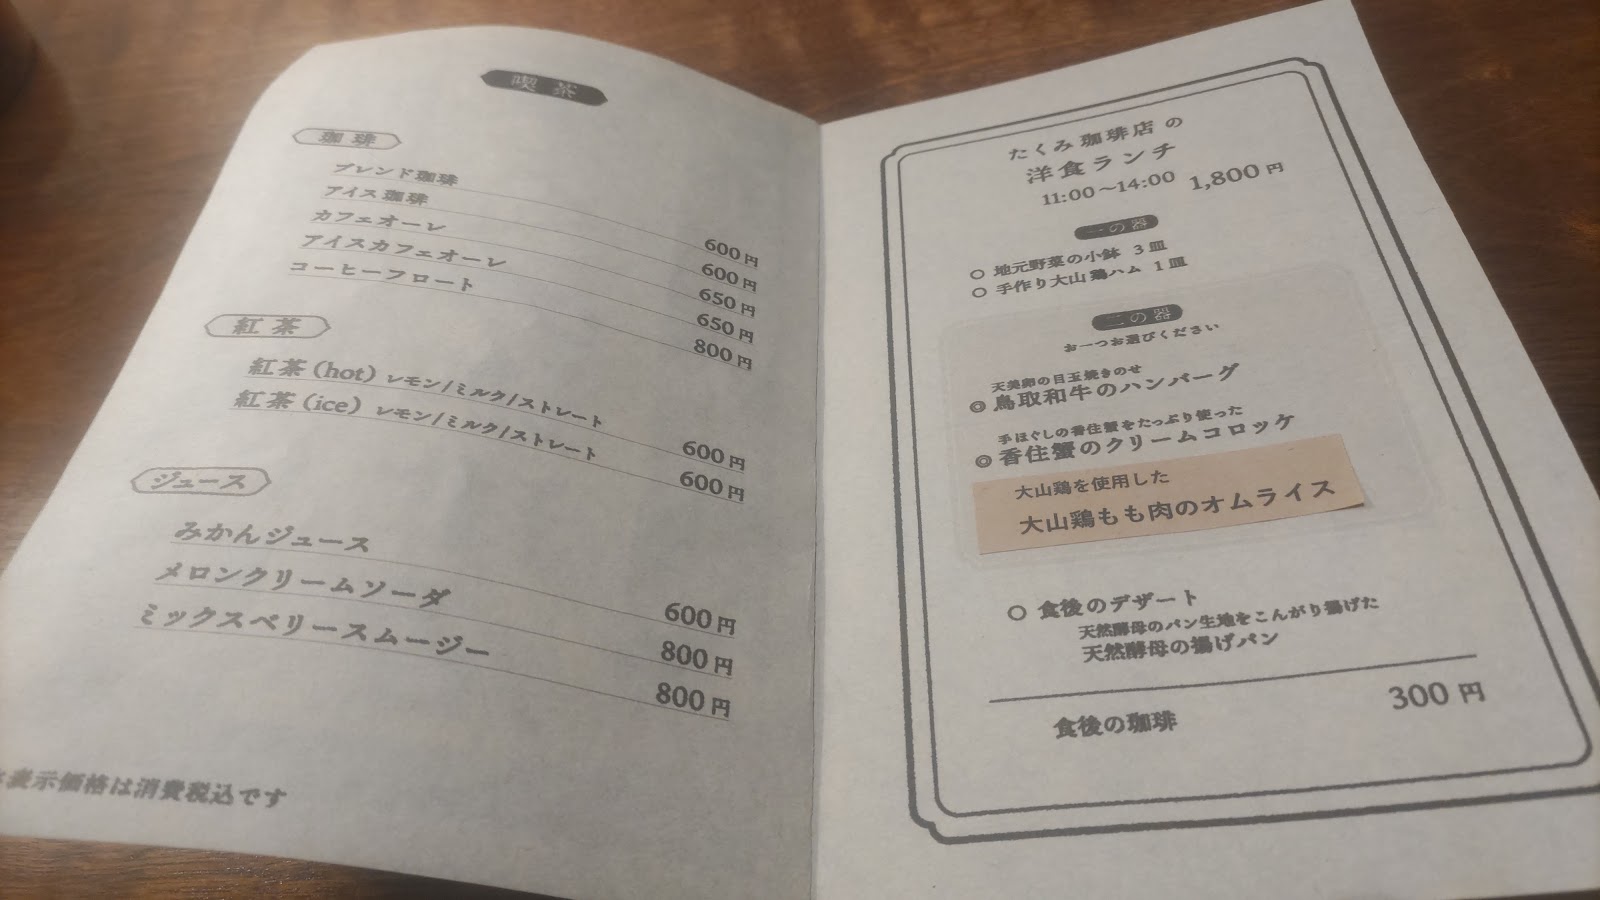 喫茶
珈琲
ブレンド珈琲 600円
アイス珈琲 600円
カフェオーレ 650円
アイスカフェオーレ 650円
コーヒーフロート 800円
紅茶
紅茶(hot) レモン/ミルク/ストレート 600円
紅茶(ice) レモン/ミルク/ストレート 600円
ジュース
みかんジュース 600円
メロンクリームソーダ 800円
ミックスベリースムージー 800円
表示価格は消費税込です
たくみ珈琲店の
洋食ランチ
11:00~14:00 1,800円
一の器
○ 地元野菜の小鉢 3皿
○ 手作り大山鶏ハム 1皿
二の器
お一つお選びください
天美卵の目玉焼きのせ
◎ 鳥取和牛のハンバーグ
手ほぐしの香住蟹をたっぷり使った
◎ 香住蟹のクリームコロッケ
大山鶏を使用した
大山鶏もも肉のオムライス
○ 食後のデザート
天然酵母のパン生地をこんがり揚げた
天然酵母の揚げパン
食後の珈琲 300円